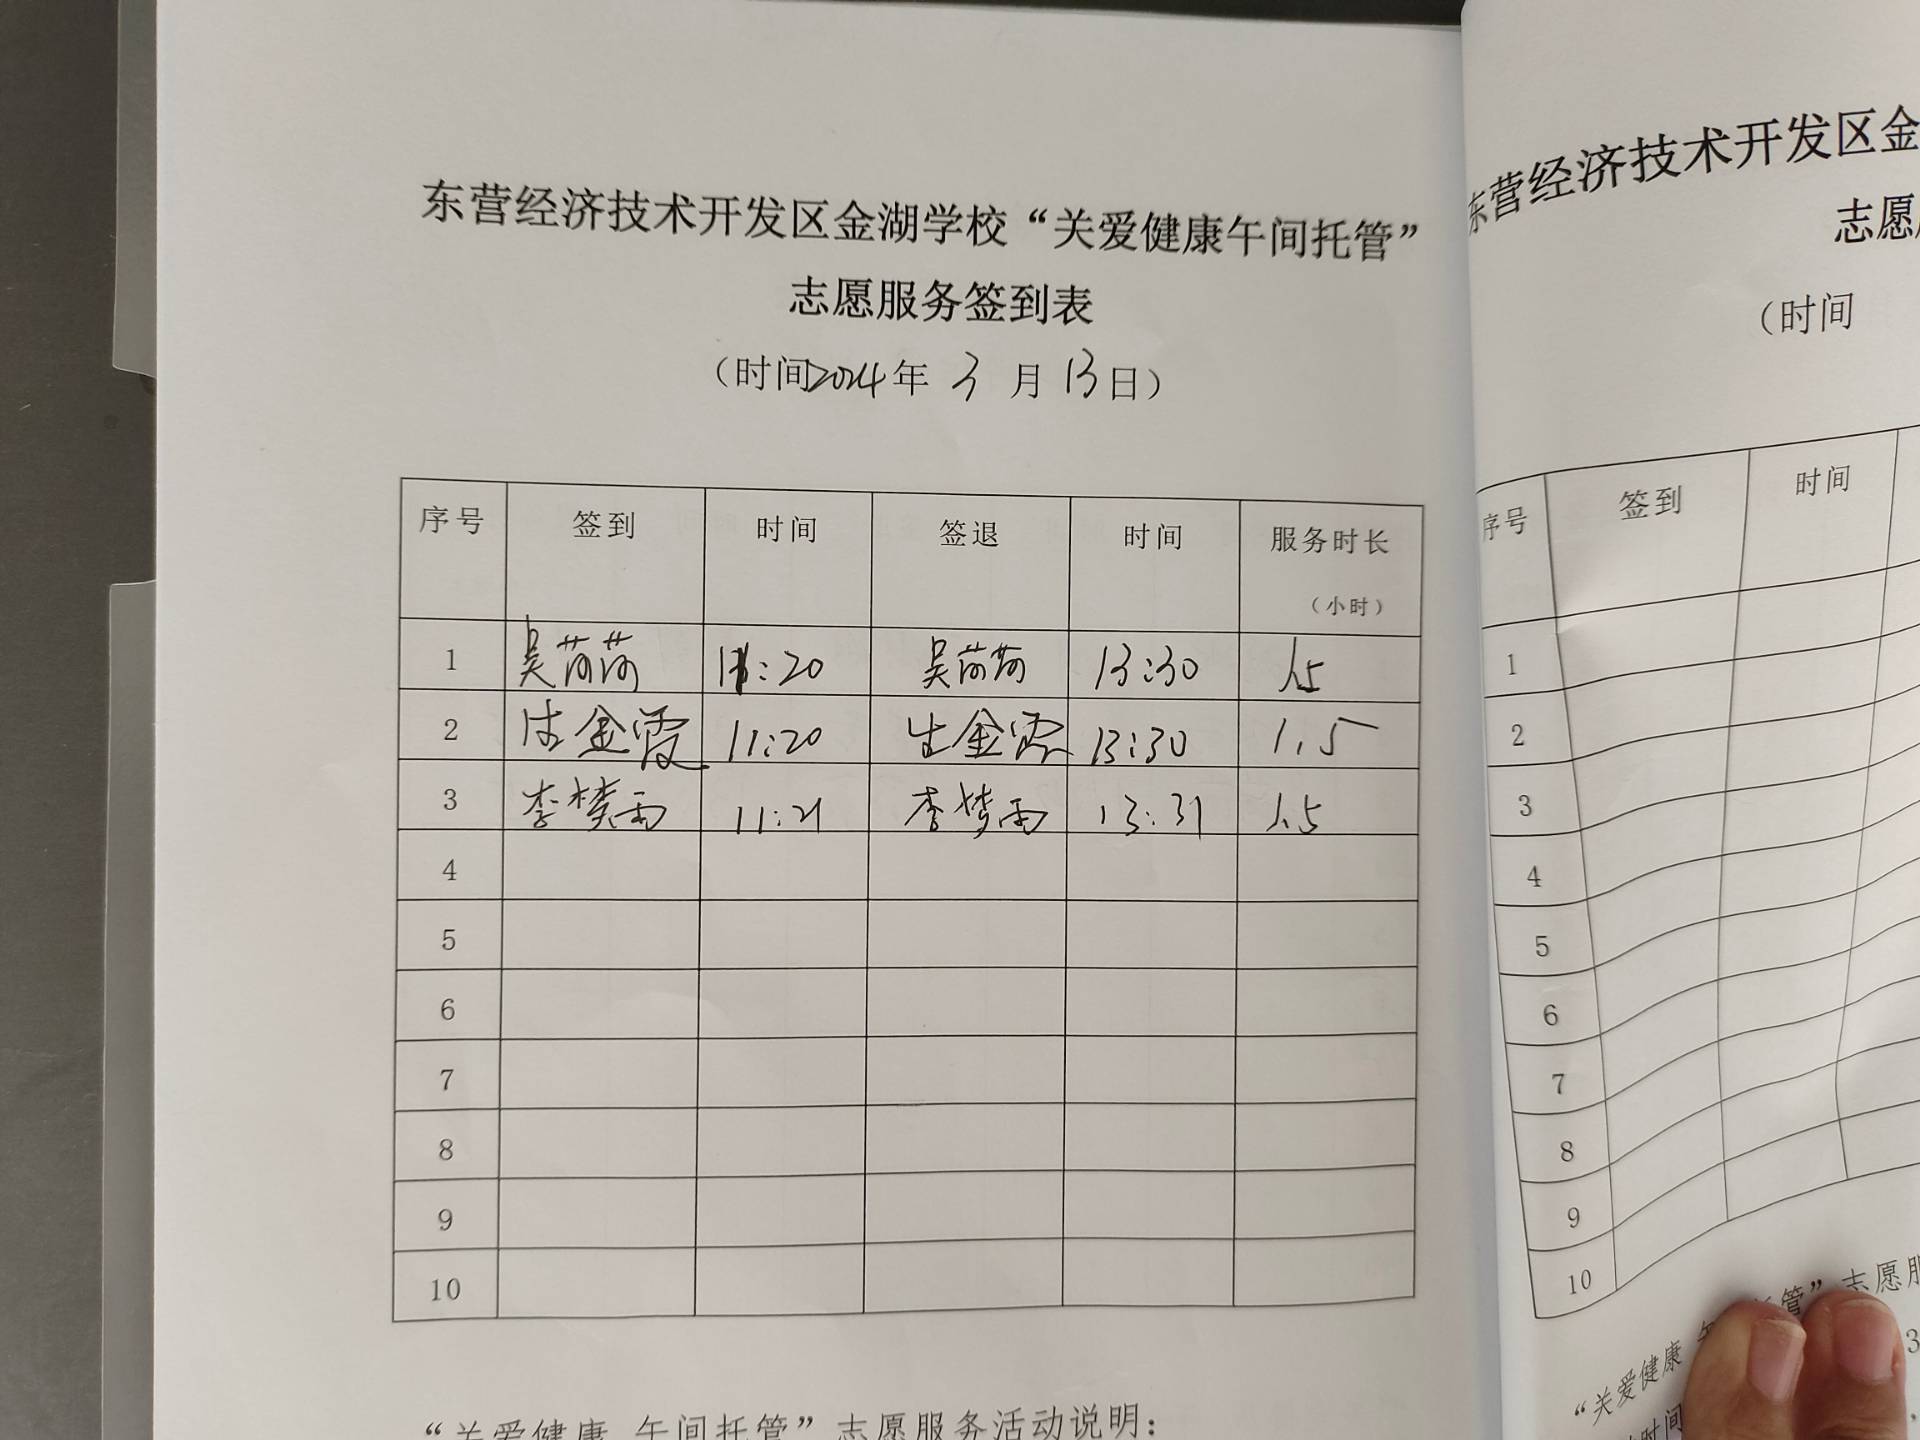 东营经济技术开发区金湖学校“关爱健康午间托管”
志愿服务签到表
（时间2024年 3 月 13日）
序号 签到 时间 签退 时间 服务时长（小时）
1 吴苘苘 11:20 吴苘苘 13:30 1.5
2 金霞 11:20 金霞 13:30 1.5
3 李梦雨 11:21 李梦雨 13:31 1.5
4
5
6
7
8
9
10
“关爱健康 午间托管”志愿服务活动说明：
东营经济技术开发区金
志愿
（时间
序号 签到 时间
1
2
3
4
5
6
7
8
9
10
托管”志愿服
“关爱健康 午
时间
3